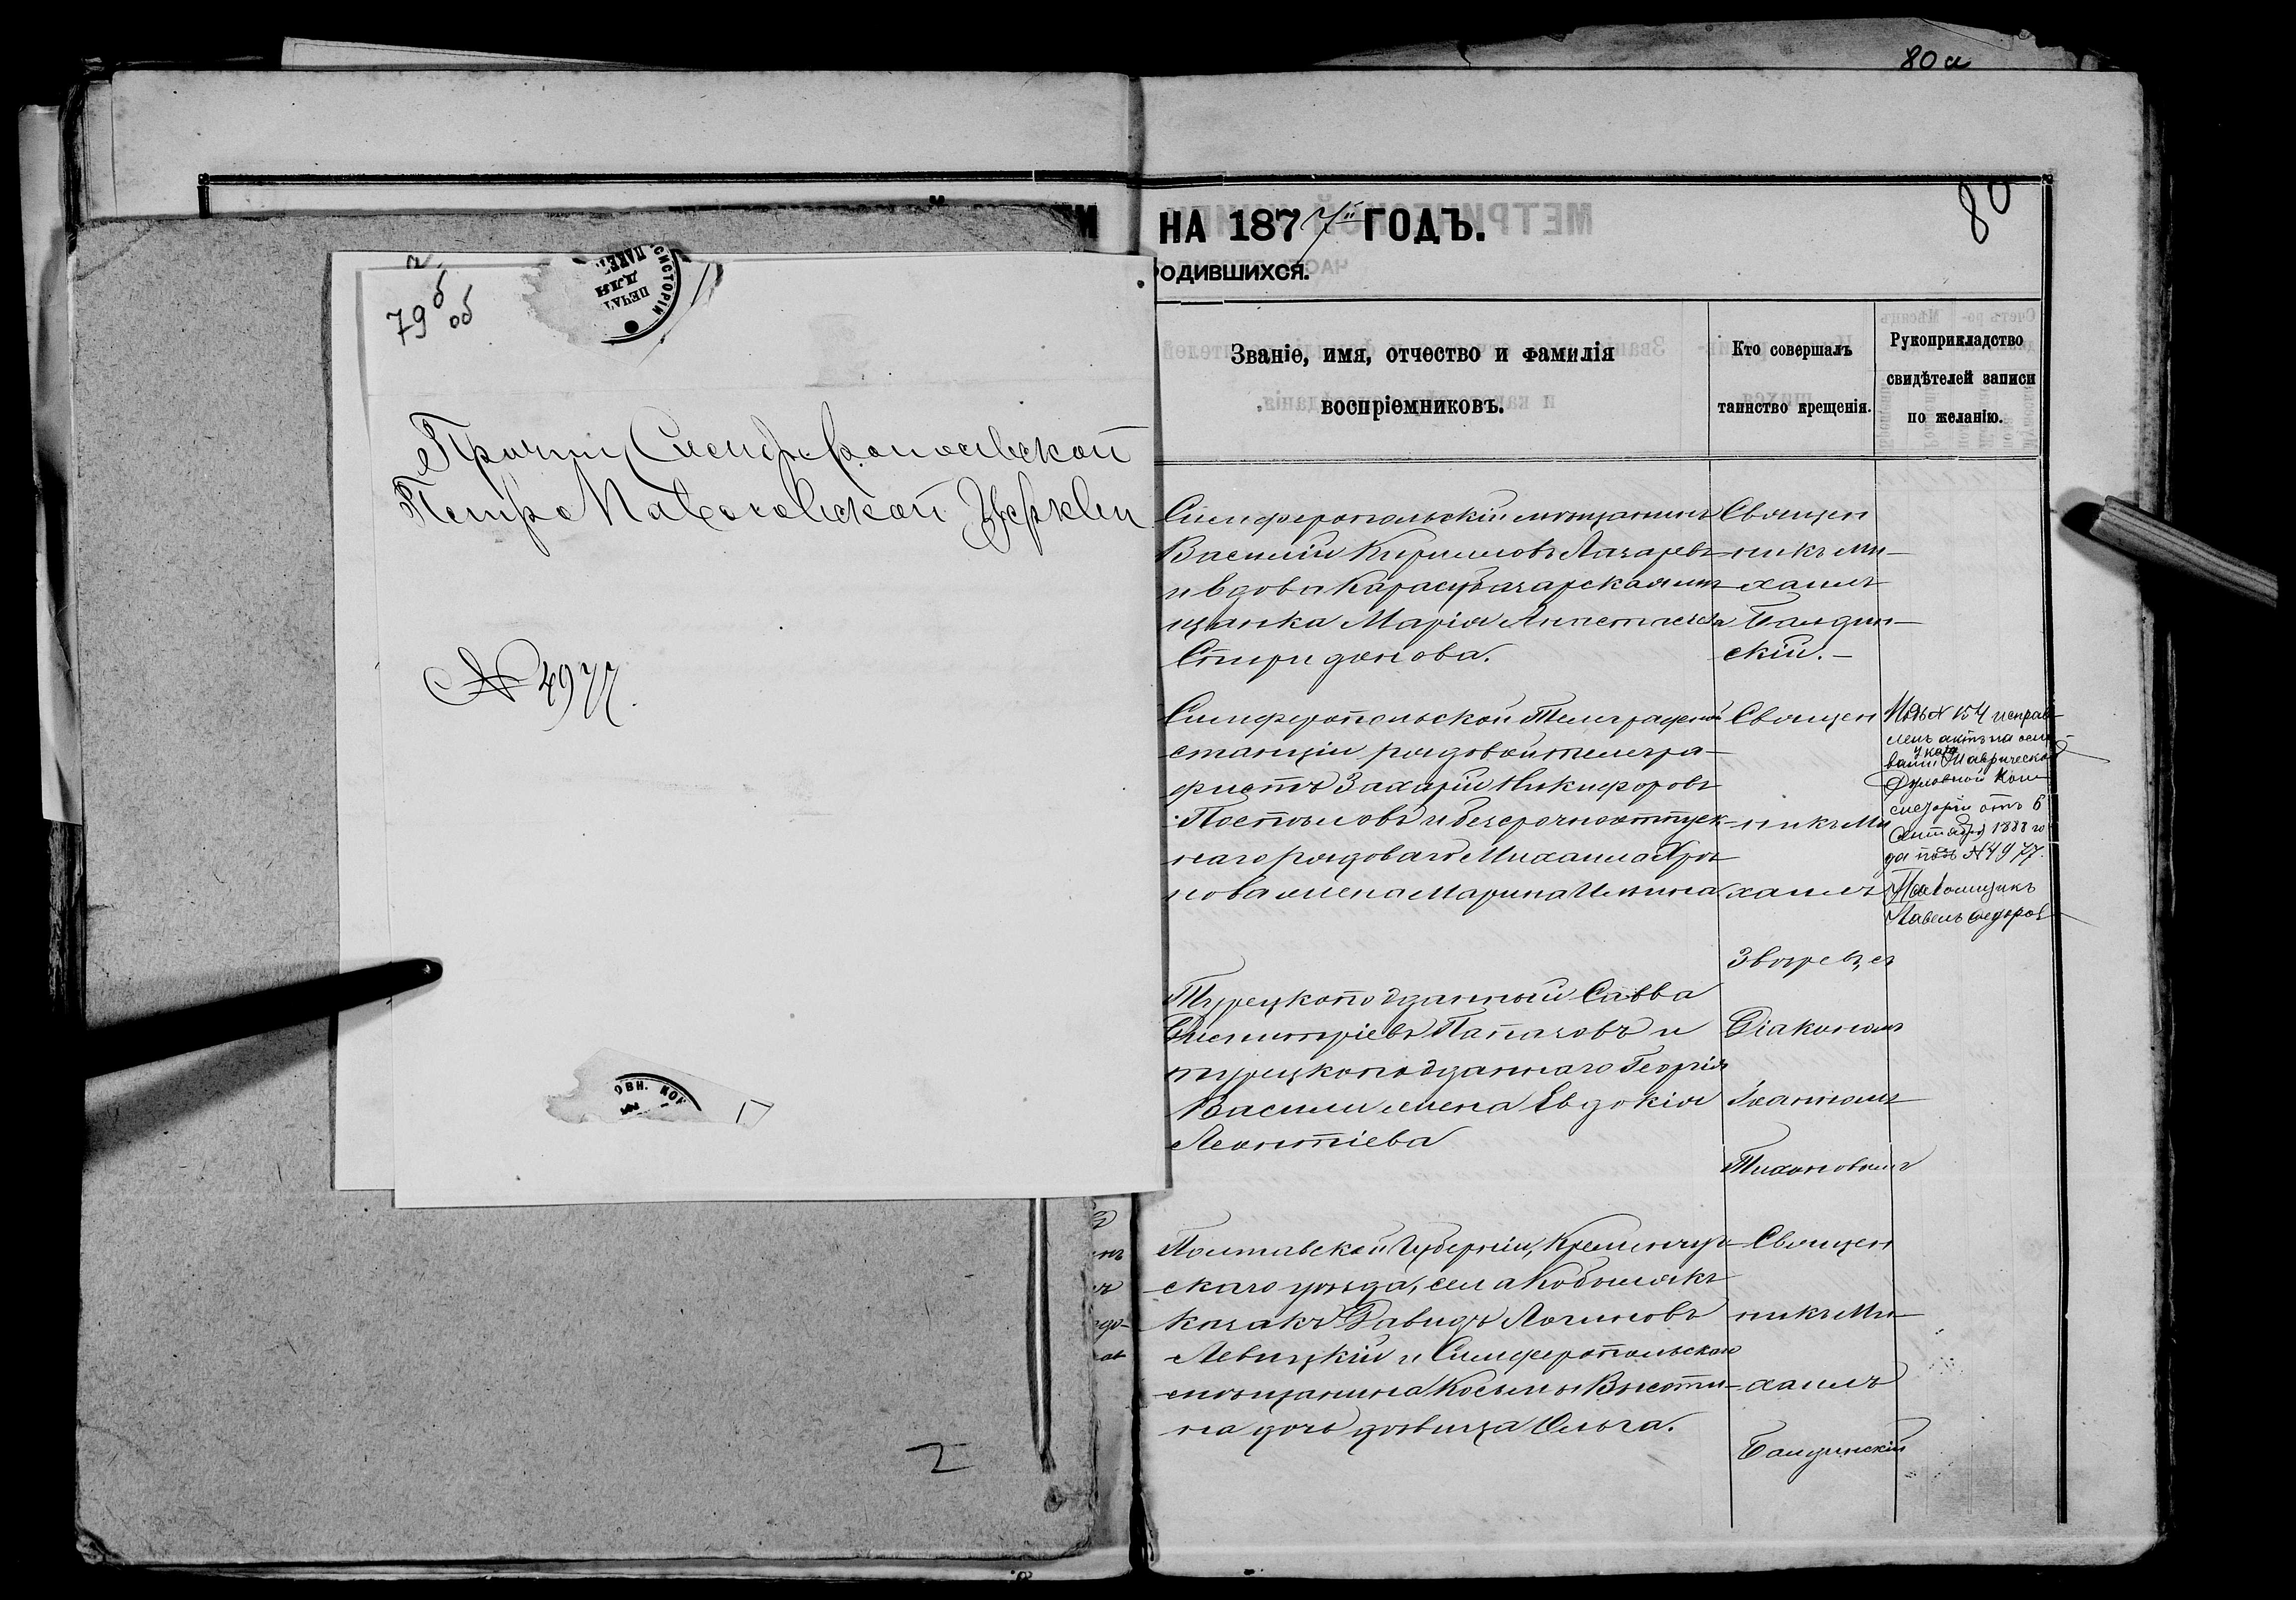 80 а
80
79 б
об
Причту Симферопольской
Петро Павловской Церкви
№ 4977.
2
НА 1877й ГОДЪ.
ОДИВШИХСЯ.
Званіе, имя, отчество и фамилія
воспріемниковъ.
Кто совершалъ
таинство крещенія.
Рукоприкладство
свидѣтелей записи
по желанію.
Симферопольскій мѣщанинъ
Василій Кириловъ Лазаревъ
и вдова Карасубазарская мѣ
щанка Марія
Спиридонова.
Священ
никъ Ми-
хаилъ
Балдин-
скій.-
Симферопольской Телеграфной
станціи рядовой телегра-
фистъ Захарій Никифоровъ
Постоловъ и безсрочноотпуск-
наго рядоваго Михаила
нова жена Марина Ильина
Священ
никъ Ми
хаилъ
Звѣревъ, съ
Діакономъ
Іоанномъ
Тихоновымъ
Подъ № 154 исправ-
ленъ актъ на осно-
указа
ваніи Таврической
Духовной Кон-
систоріи отъ 6
Сентября 1888 го
да подъ № 4977.
Псаломщикъ
Павелъ Федоров
Турецкоподданный Савва
Димитріевъ Папазовъ и
турецкоподданнаго Георгія
Васили жена Евдокія
Леонтіева
Полтавской Губерніи, Кременчуг-
скаго уѣзда, села Кобылякъ
козакъ Давидъ Логиновъ
Левицкій и Симферопольскаго
мѣщанина Косьмы Высоти-
на дочь дѣвица Ольга.
Священ
никъ Ми-
хаилъ
Балдинскій